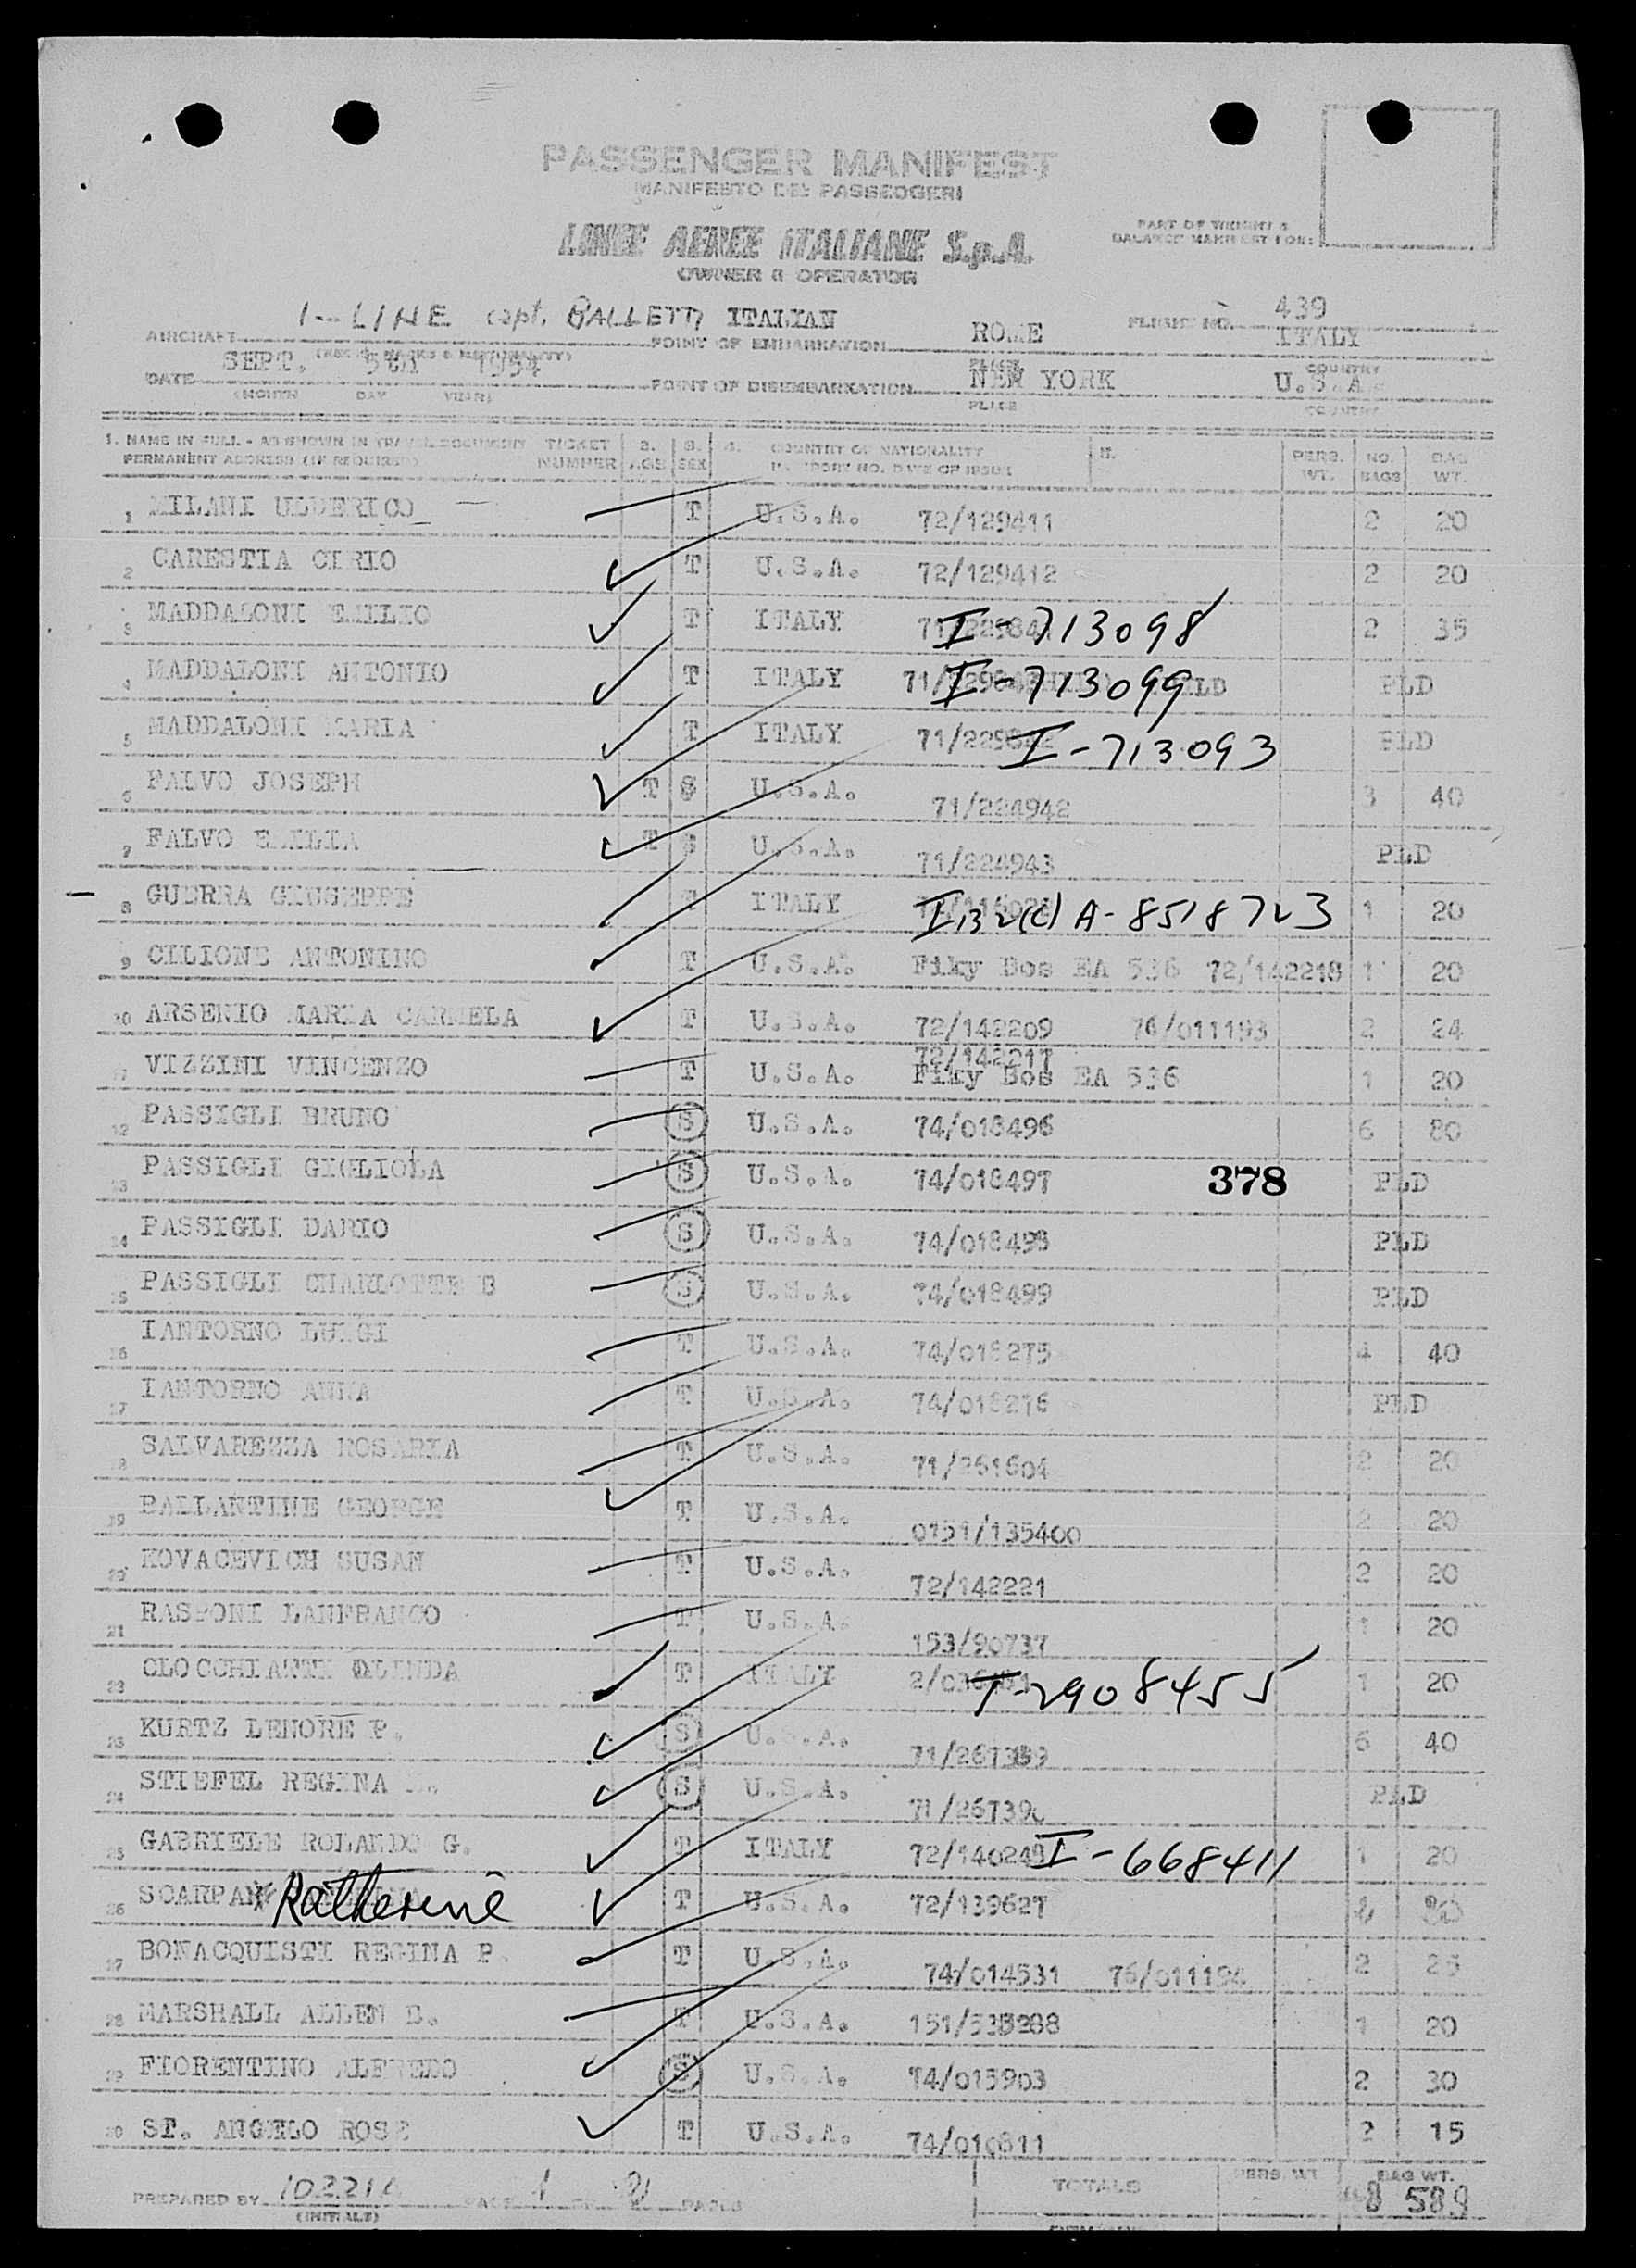 PASSENGER MANIFEST
MANIFESTO DEI PASSEGGERI
LINEE AEREE ITALIANE S.p.A.
OWNER & OPERATOR
PART OF WEIGHT &
BALANCE MANIFEST FOR:
AIRCRAFT I-LINE capt. BALLETTI ITALIAN POINT OF EMBARKATION ROME FLIGHT NO. 439 ITALY
(REG. MARKS & NATIONALITY) PLACE COUNTRY
DATE SEPT. 5th 1954 POINT OF DISEMBARKATION NEW YORK U.S.A.
(MONTH DAY YEAR) PLACE COUNTRY
1. NAME IN FULL - AS SHOWN IN TRAVEL DOCUMENT TICKET 2. 3. 4. COUNTRY OF NATIONALITY 5. PERS. NO. BAG
PERMANENT ADDRESS (IF REQUIRED) NUMBER AGE SEX PASSPORT NO. DATE OF ISSUE WT. BAGS WT.
1 MILANI ULDERICO T U.S.A. 72/129411 2 20
2 CARESTIA CIRIO T U.S.A. 72/129412 2 20
3 MADDALONI EMILIO T ITALY I-713098 2 35
4 MADDALONI ANTONIO T ITALY I-713099 PLD
5 MADDALONI MARIA T ITALY I-713093 PLD
6 FALVO JOSEPH T S U.S.A. 71/224942 3 40
7 FALVO EMILIA T S U.S.A. 71/224943 PLD
8 GUERRA GIUSEPPE T ITALY A-8518723 1 20
9 CILIONE ANTONINO T U.S.A. Fiky Bos EA 536 72/142218 1 20
10 ARSENIO MARIA CARMELA T U.S.A. 72/142209 76/011193 2 24
72/142217
11 VIZZINI VINCENZO T U.S.A. Fiky Bos EA 536 1 20
12 PASSIGLI BRUNO S U.S.A. 74/018496 6 80
13 PASSIGLI GIGLIOLA S U.S.A. 74/018497 378 PLD
14 PASSIGLI DARIO S U.S.A. 74/018498 PLD
15 PASSIGLI CHARLOTTE B S U.S.A. 74/018499 PLD
16 IANTORNO LUIGI T U.S.A. 74/018275 4 40
17 IANTORNO ANNA T U.S.A. 74/018276 PLD
18 SALVAREZZA ROSARIA T U.S.A. 71/261604 2 20
19 BALLANTINE GEORGE T U.S.A. 0151/135400 2 20
20 KOVACEVICH SUSAN T U.S.A. 72/142221 2 20
21 RASPONI LANFRANCO T U.S.A. 153/90737 1 20
22 CLOCCHIATTI OLINDA T ITALY I-2908455 1 20
23 KURTZ LENORE P. S U.S.A. 71/267389 5 40
24 STIEFEL REGINA S U.S.A. 71/267390 PLD
25 GABRIELE ROLANDO G. T ITALY 72/140249 I-668411 1 20
26 SCARPA Katherine T U.S.A. 72/139627
27 BONACQUISTI REGINA P. T U.S.A. 74/014531 76/011194 2 25
28 MARSHALL ALLEN B. T U.S.A. 151/535288 1 20
29 FIORENTINO ALFREDO S U.S.A. 74/015903 2 30
30 ST. ANGELO ROSE T U.S.A. 74/010811 2 15
PREPARED BY PAGE 1 OF 2 PAGES TOTALS PERS. WT BAG WT.
(INITIALS) 589